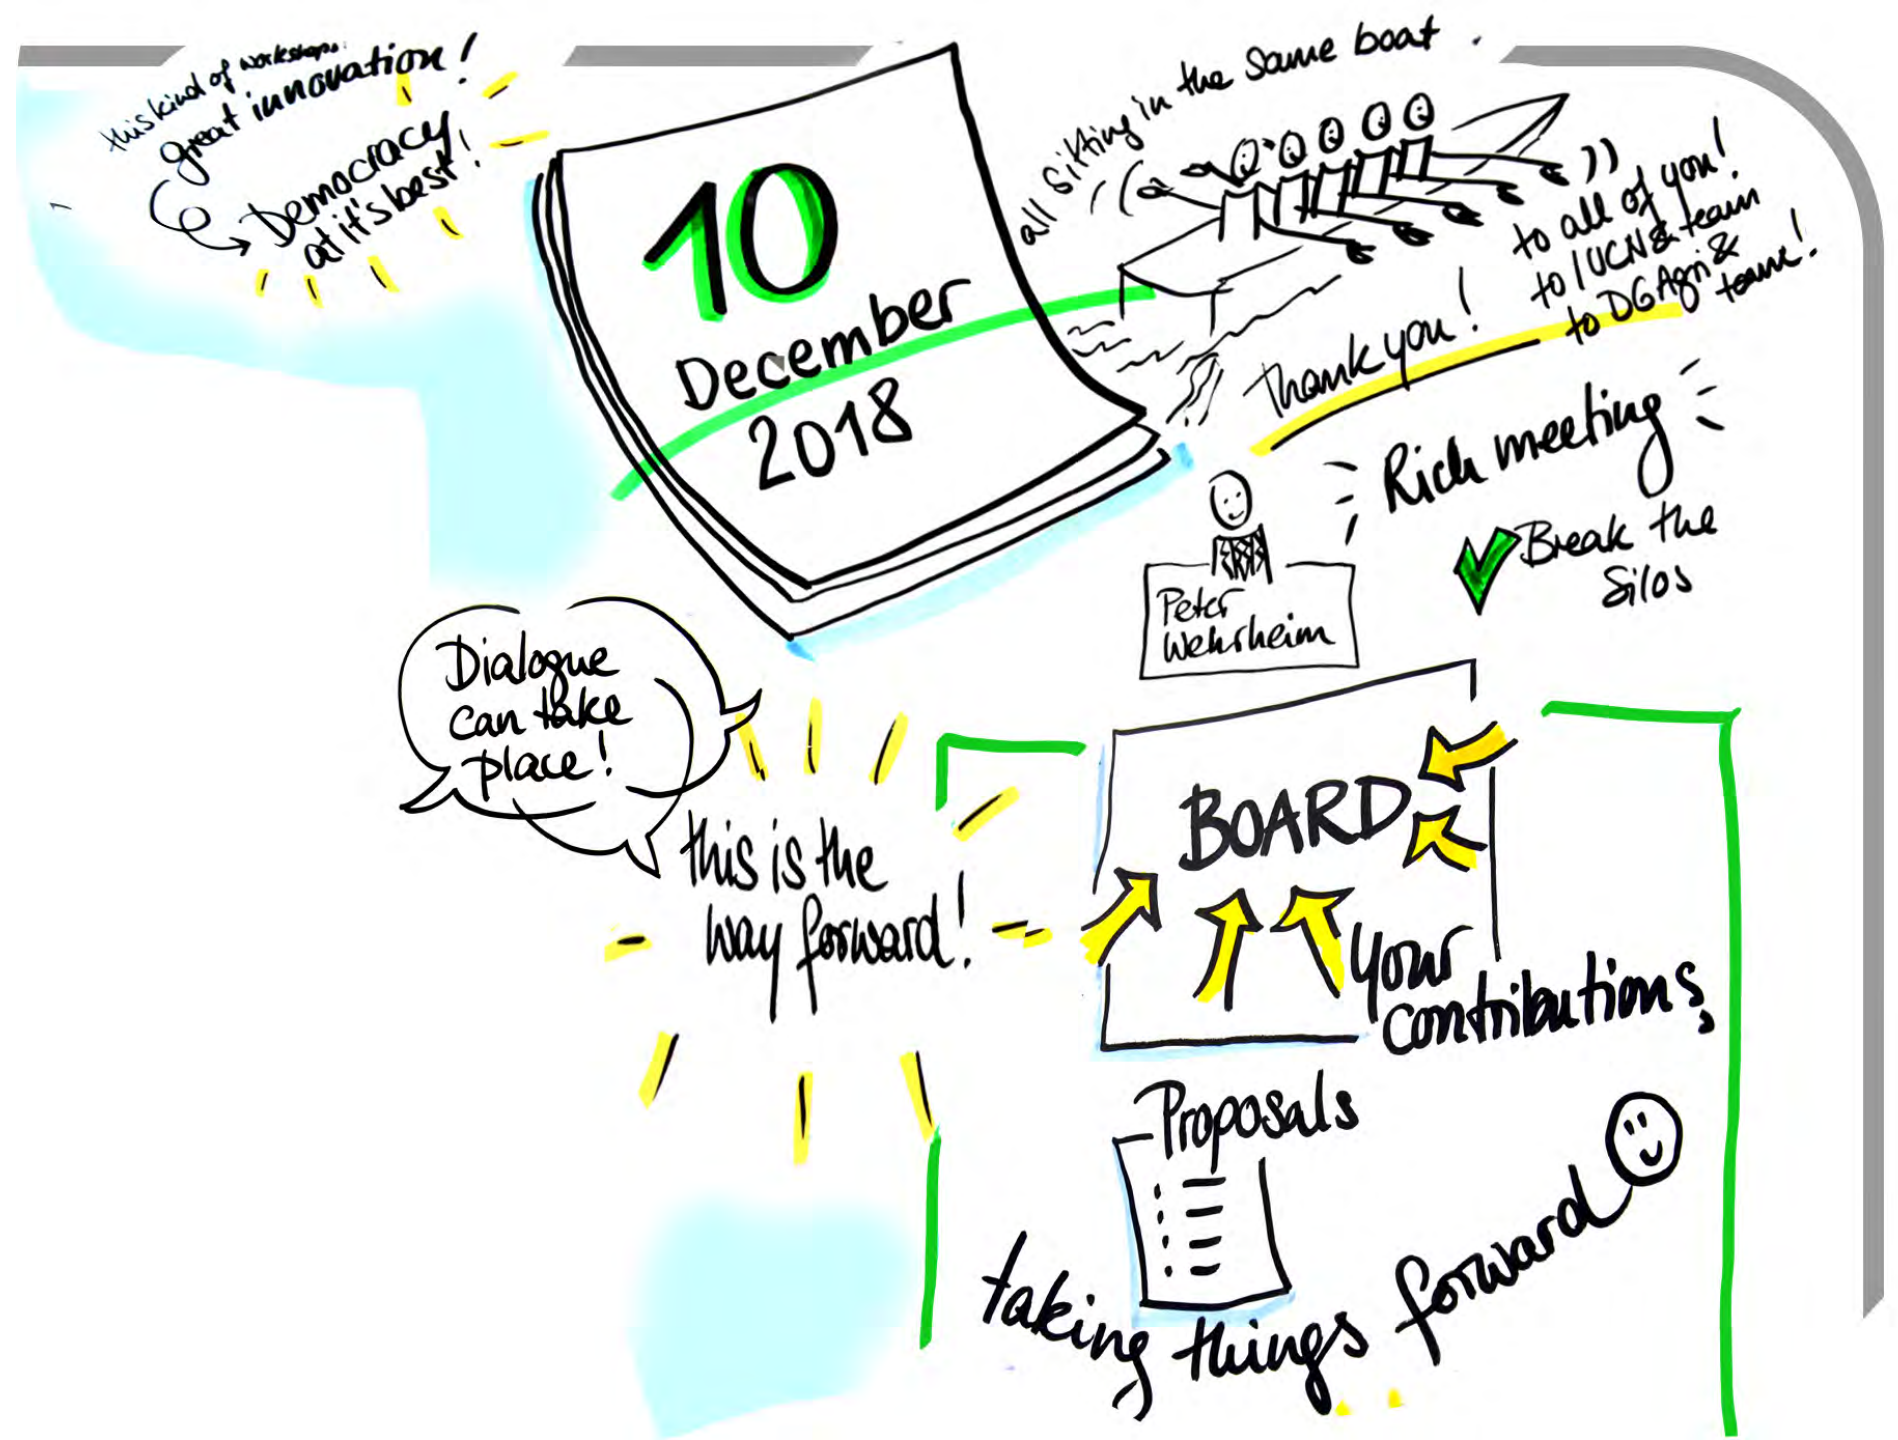 this kind of workshops:
great innovation!
Democracy
at it's best!
10
December
2018
all sitting in the same boat.
Thank you!
to all of you!
to IUCN & team
to DG Agri &
team!
Rich meeting
Break the
Silos
Peter
Wehrheim
Dialogue
can take
place!
this is the
way forward!
BOARD
your
contributions,
Proposals
taking things forward